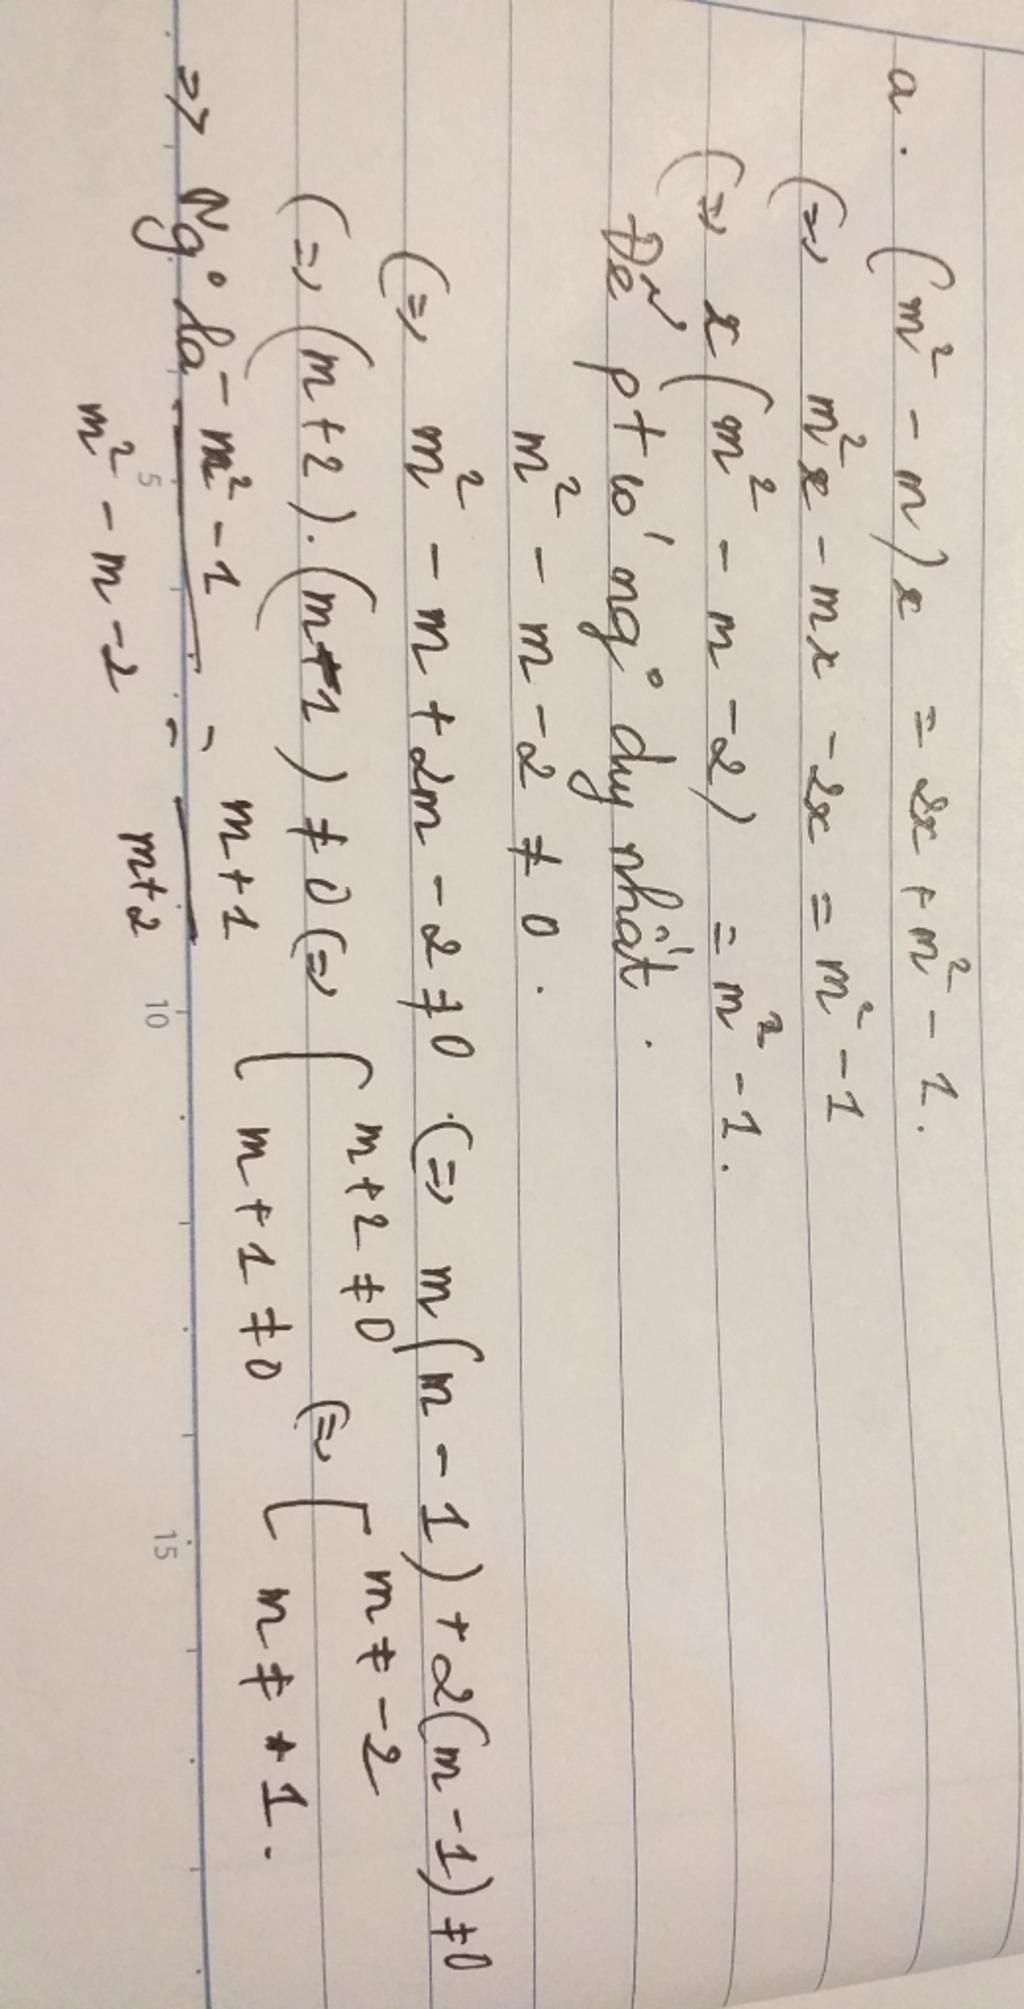 a. (m² - m)x = 2x + m² - 1.
(=) m²x - mx - 2x = m² - 1
(=) x(m² - m - 2) = m² - 1.
Để pt có ng° duy nhất.
m² - m - 2 ≠ 0.
(=) m² - m + 2m - 2 ≠ 0. (=) m(m - 1) + 2(m - 1) ≠ 0
(=) (m + 2).(m + 1) ≠ 0 (=) [ m + 2 ≠ 0 (=) [ m ≠ -2
m + 1 ≠ 0 m ≠ 1.
=> Ng° là m² - 1 = m + 1
m² - m - 2 m + 2
5 10 15